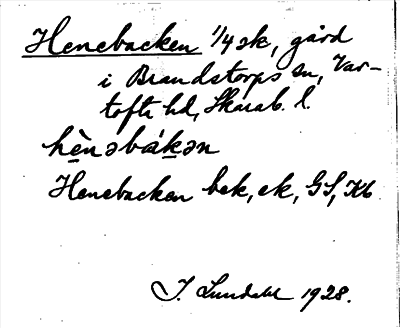 Henebacken 1/4 sk, gård
i Brandstorps sn, Var-
tofta hd, Skarab. l.
hènəbákən
Henebacken bek, ek, GS, Kb
I. Lundahl 1928.